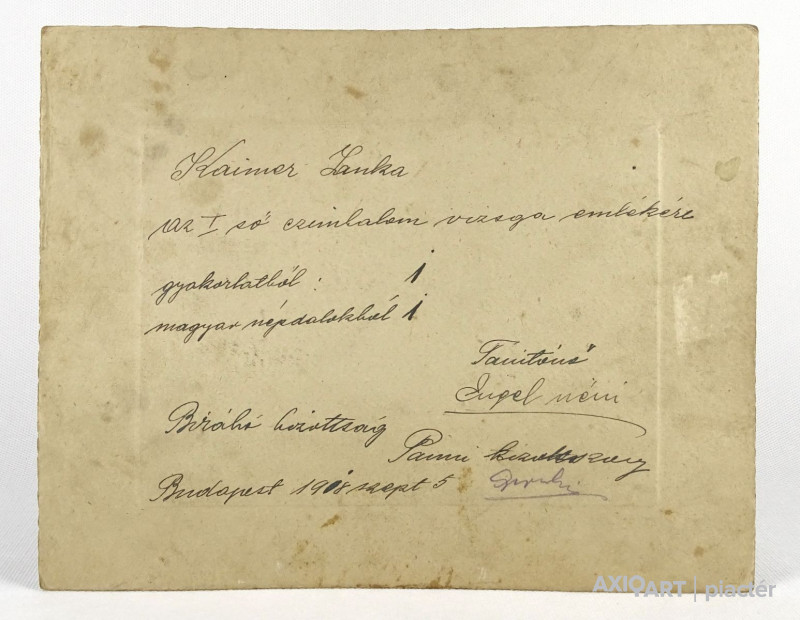 Kaimer Janka
az I ső czimbalom vizsga emlékére
gyakorlatból : 1
magyar népdalokból 1
Tanitónő
Engel néni
Biráló bizottság
Panni
Budapest 1918 szept 5
AXIOART | piactér